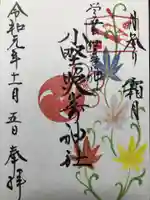 月参り
霜月
小野照崎神社
令和元年十一月五日 奉拝